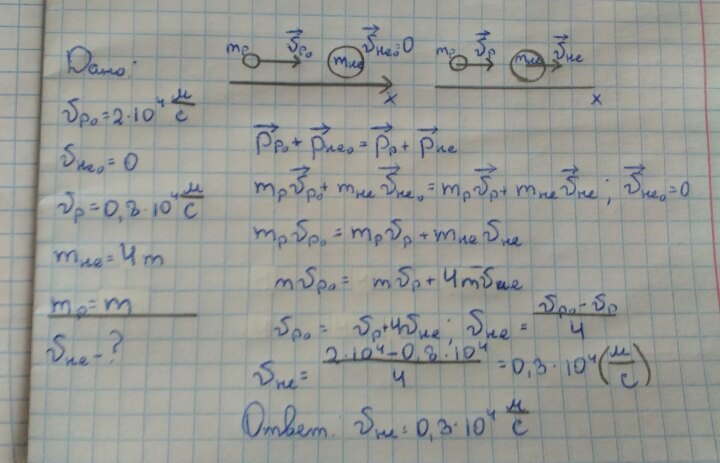 Дано:
υp₀ = 2·10⁴ м/с
υHe₀ = 0
υp = 0,8·10⁴ м/с
mHe = 4m
mp = m
υHe - ?
mp υ⃗p₀ mHe υ⃗He₀=0
x
mp υ⃗p mHe υ⃗He
x
p⃗p₀ + p⃗He₀ = p⃗p + p⃗He
mpυ⃗p₀ + mHeυ⃗He₀ = mpυ⃗p + mHeυ⃗He ; υ⃗He₀ = 0
mpυp₀ = mpυp + mHeυHe
mυp₀ = mυp + 4mυHe
υp₀ = υp + 4υHe ; υHe = (υp₀ - υp)/4
υHe = (2·10⁴ - 0,8·10⁴)/4 = 0,3·10⁴ (м/с)
Ответ: υHe = 0,3·10⁴ м/с